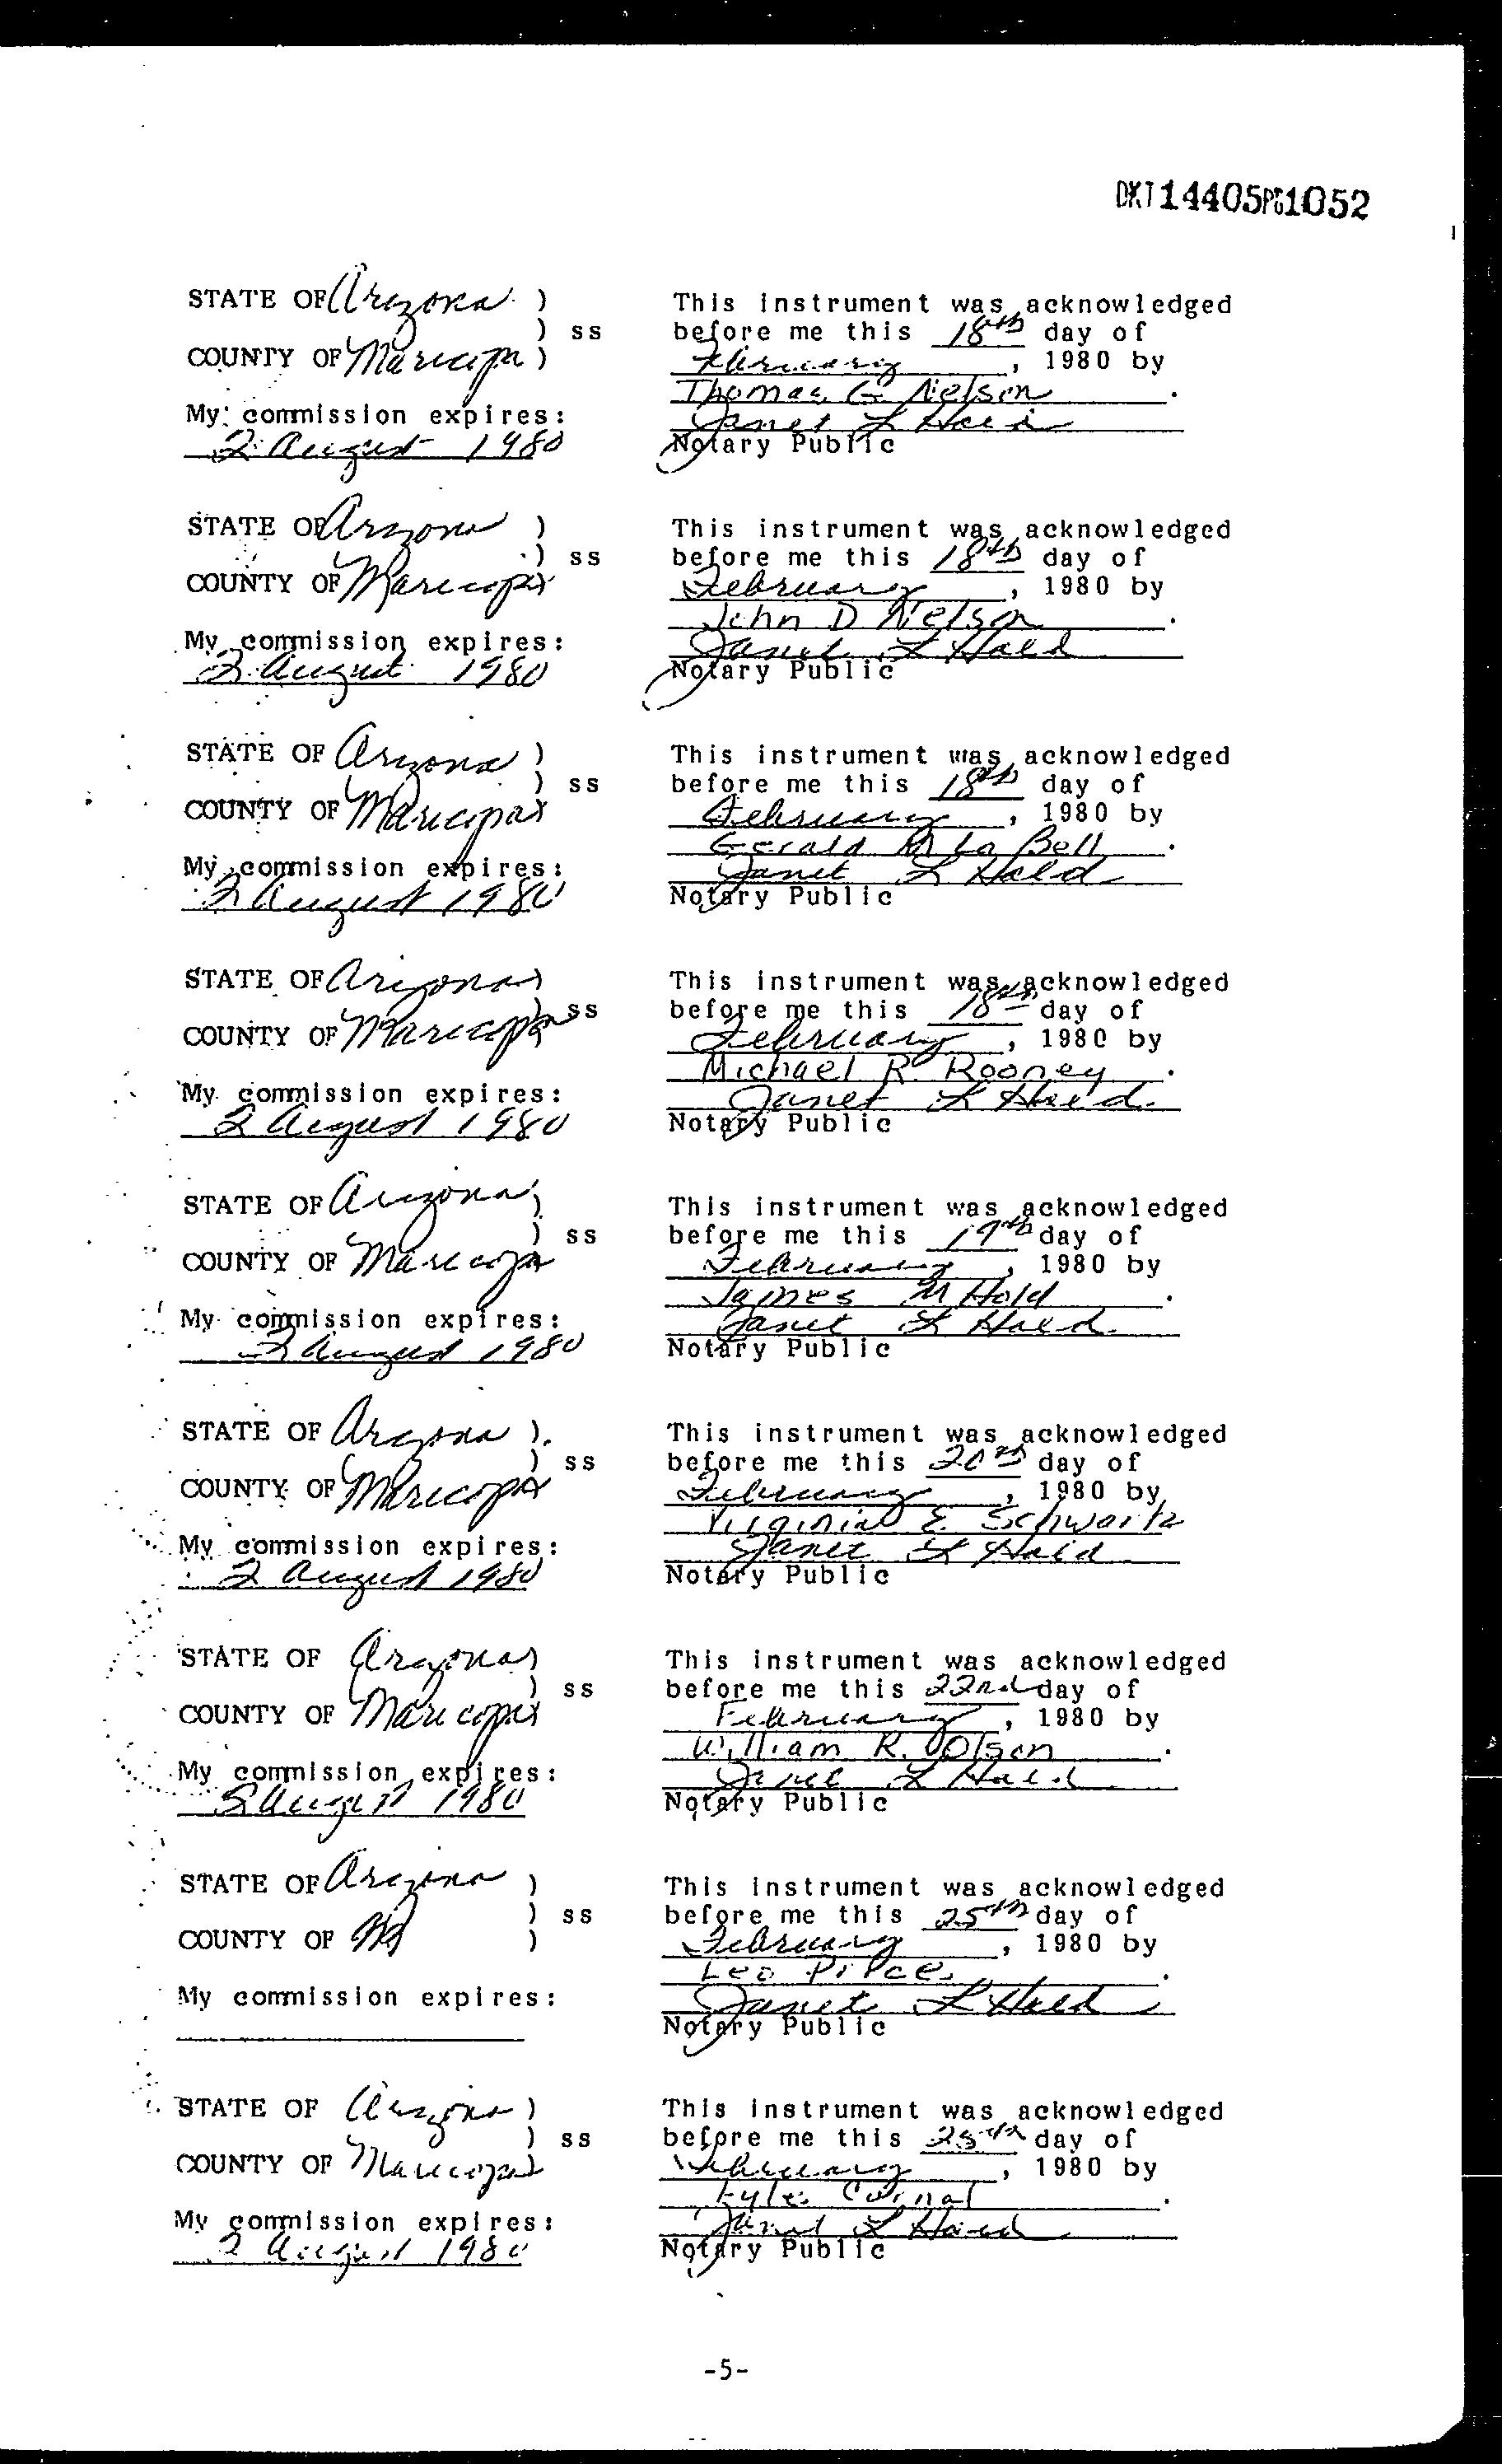 DKT14405PG1052
STATE OF Arizona )
) ss
COUNTY OF Maricopa )
My commission expires:
2 August 1980
This instrument was acknowledged
before me this 18th day of
February, 1980 by
Thomas G Nelson.
Janet L
Notary Public
STATE OF Arizona )
) ss
COUNTY OF Maricopa
My commission expires:
2 August 1980
This instrument was acknowledged
before me this 18th day of
February, 1980 by
John D Nelson.
Janet L
Notary Public
STATE OF Arizona )
) ss
COUNTY OF Maricopa
My commission expires:
2 August 1980
This instrument was acknowledged
before me this 18th day of
February, 1980 by
Gerald M La Bell.
Janet L
Notary Public
STATE OF Arizona )
) ss
COUNTY OF Maricopa
My commission expires:
2 August 1980
This instrument was acknowledged
before me this 18th day of
February, 1980 by
Michael R. Rooney.
Janet L
Notary Public
STATE OF Arizona )
) ss
COUNTY OF Maricopa
My commission expires:
2 August 1980
This instrument was acknowledged
before me this 19th day of
February, 1980 by
James M Hold.
Janet L
Notary Public
STATE OF Arizona )
) ss
COUNTY OF Maricopa
My commission expires:
2 August 1980
This instrument was acknowledged
before me this 20th day of
February, 1980 by
Virginia E. Schwartz
Janet L
Notary Public
STATE OF Arizona )
) ss
COUNTY OF Maricopa
My commission expires:
2 August 1980
This instrument was acknowledged
before me this 22nd day of
February, 1980 by
William R. Olsen.
Janet L
Notary Public
STATE OF Arizona )
) ss
COUNTY OF M )
My commission expires:
This instrument was acknowledged
before me this 25th day of
February, 1980 by
Leo.
Janet L
Notary Public
STATE OF Arizona )
) ss
COUNTY OF Maricopa
My commission expires:
2 August 1980
This instrument was acknowledged
before me this 25th day of
February, 1980 by
Lyle.
Janet L
Notary Public
-5-